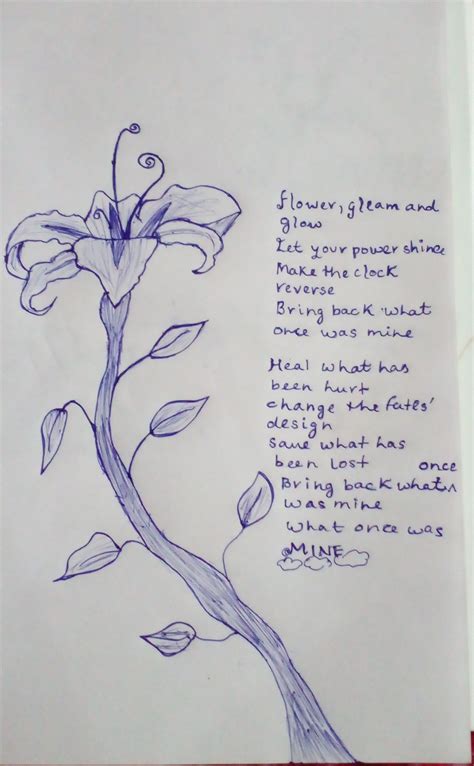 flower, gleam and
glow
Let your power shine
Make the clock
reverse
Bring back what
once was mine
Heal what has
been hurt
change the fates'
design
save what has
been lost
Bring back what once
was mine
what once was
MINE